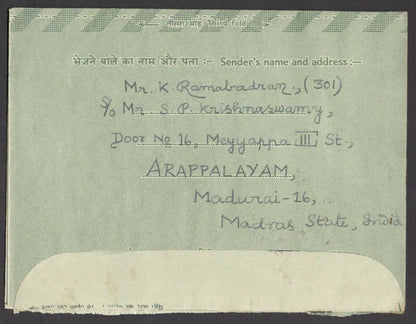 ← तीसरा मोड़ Third fold →
भेजने वाले का नाम और पता :- Sender's name and address :-
Mr. K. Ramabadran., (301)
S/o Mr. S. P. Krishnaswamy,
Door No 16, Meyyappa III St.,
ARAPPALAYAM,
Madurai-16,
Madras State, India